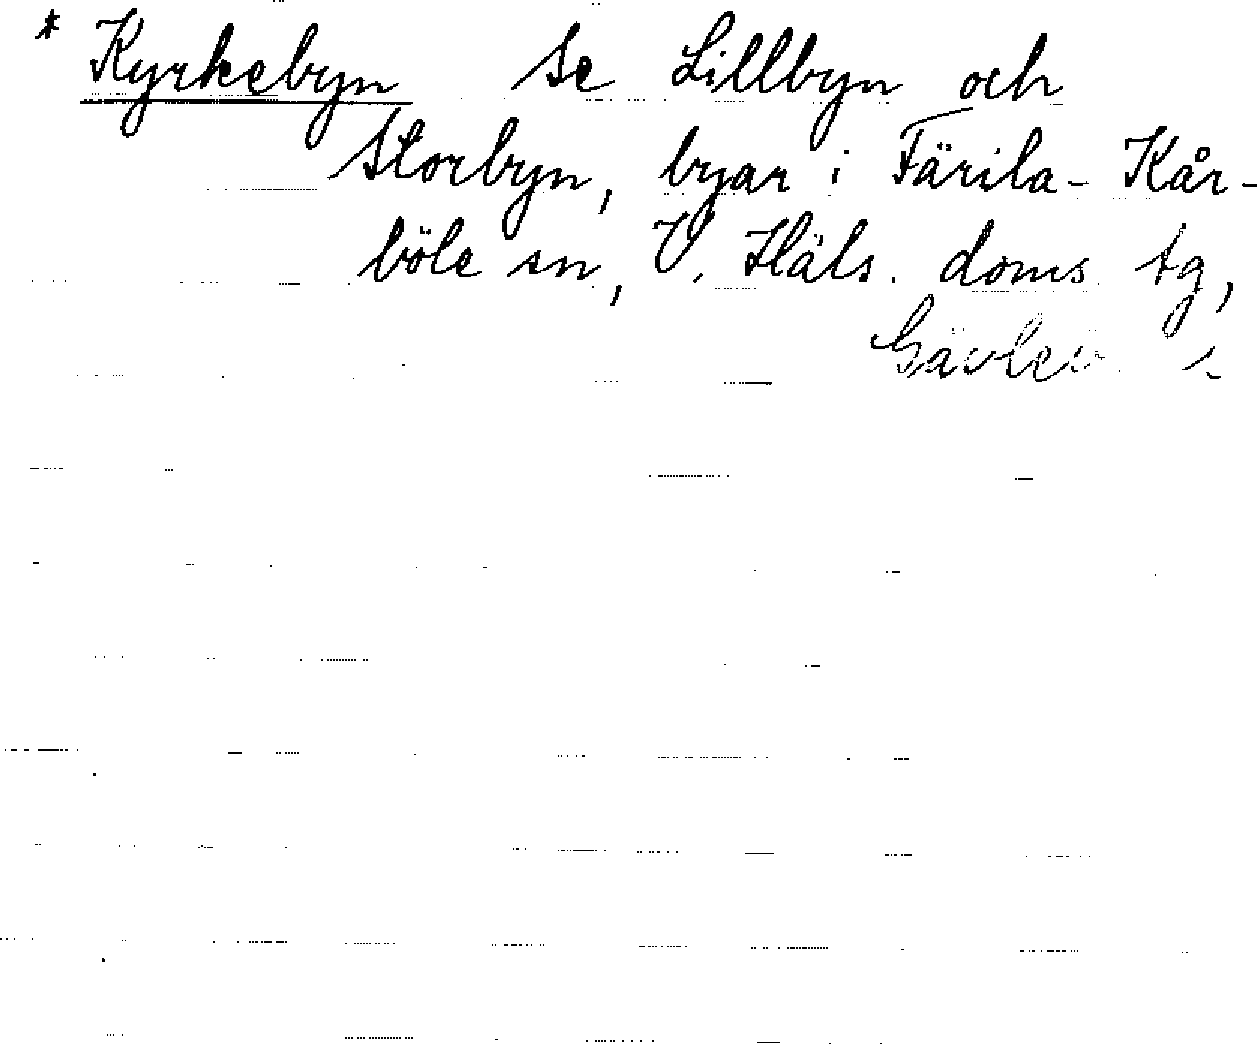 * Kyrkebyn se Lillbyn och
Storbyn, byar i Färila-Kår-
böle sn, V. Häls. doms tg,